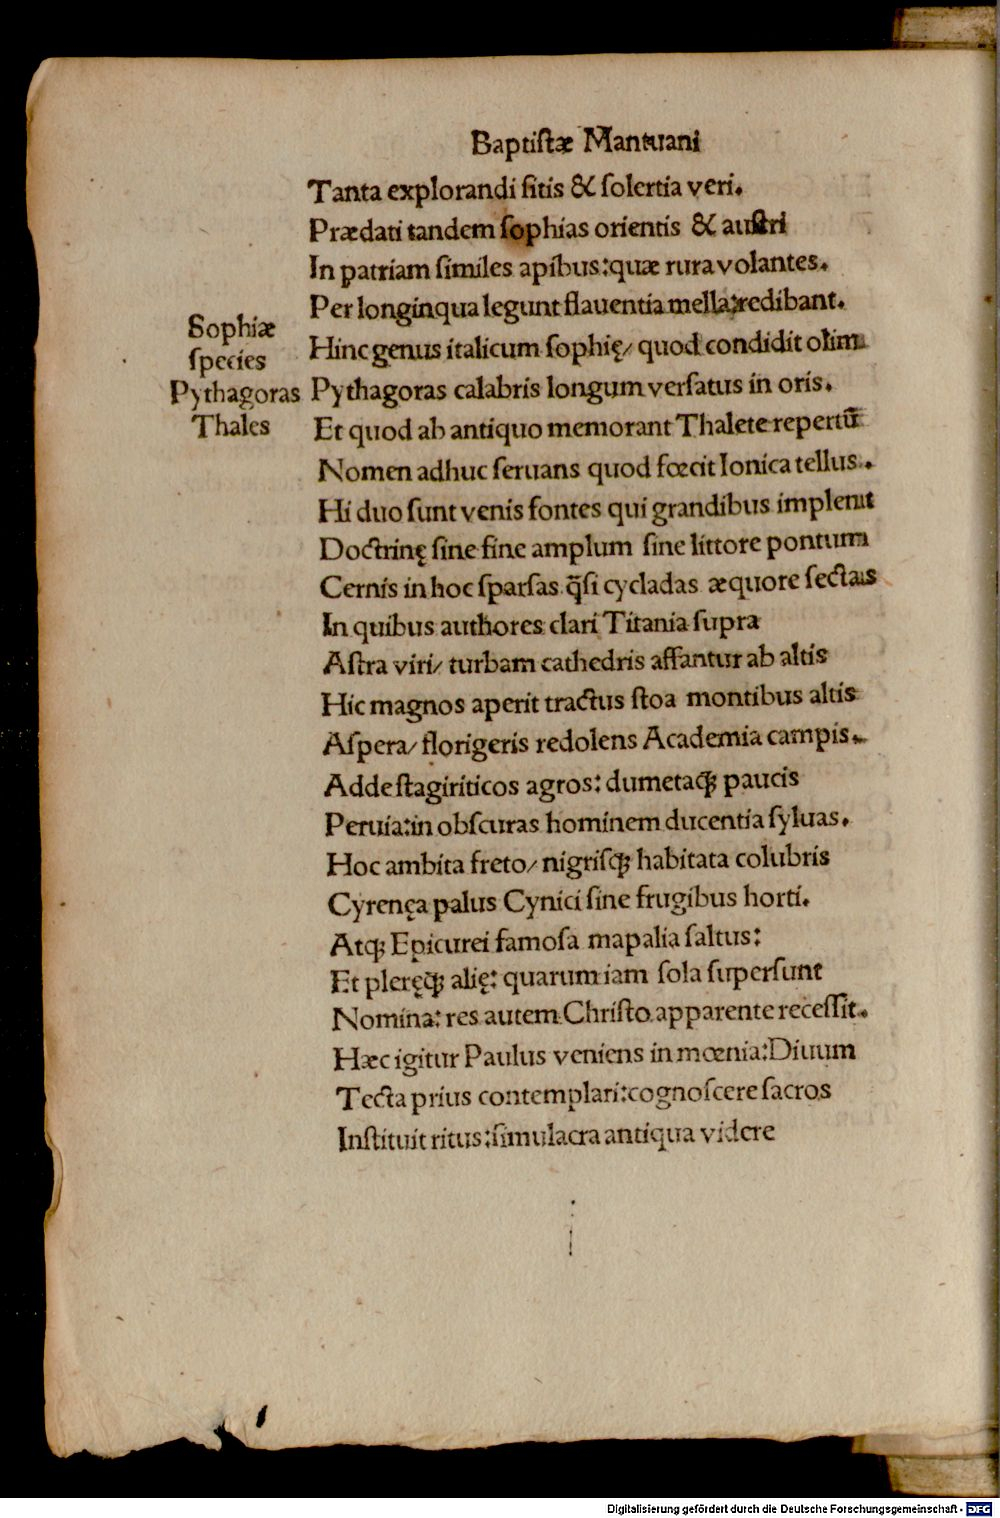 Baptiſtæ Mantuani
Tanta explorandi ſitis & ſolertia veri.
Prædati tandem ſophias orientis & auſtri
In patriam ſimiles apibus: quæ rura volantes.
Per longinqua legunt flauentia mella: redibant.
Sophiæ
ſpecies
Pythagoras
Thales
Hinc genus italicum ſophię/ quod condidit olim
Pythagoras calabris longum verſatus in oris.
Et quod ab antiquo memorant Thalete repertū
Nomen adhuc ſeruans quod fœcit Ionica tellus.
Hi duo ſunt venis fontes qui grandibus implent
Doctrinę ſine fine amplum ſine littore pontum
Cernis in hoc sparſas q̄ſi cycladas æquore ſectas
In quibus authores clari Titania ſupra
Aſtra viri/ turbam cathedris affantur ab altis
Hic magnos aperit tractus ſtoa montibus altis
Aſpera/ florigeris redolens Academia campis.
Adde ſtagiriticos agros: dumetaq; paucis
Peruia: in obſcuras hominem ducentia ſyluas.
Hoc ambita freto/ nigriſq; habitata colubris
Cyrenęa palus Cynici ſine frugibus horti.
Atq; Epicurei famoſa mapalia ſaltus:
Et pleręq; alię: quarum iam ſola ſuperſunt
Nomina: res autem Chriſto apparente receſſit.
Hæc igitur Paulus veniens in mœnia: Diuum
Tecta prius contemplari: cognoſcere ſacros
Inſtituit ritus: ſimulacra antiqua videre
Digitalisierung gefördert durch die Deutsche Forschungsgemeinschaft - DFG